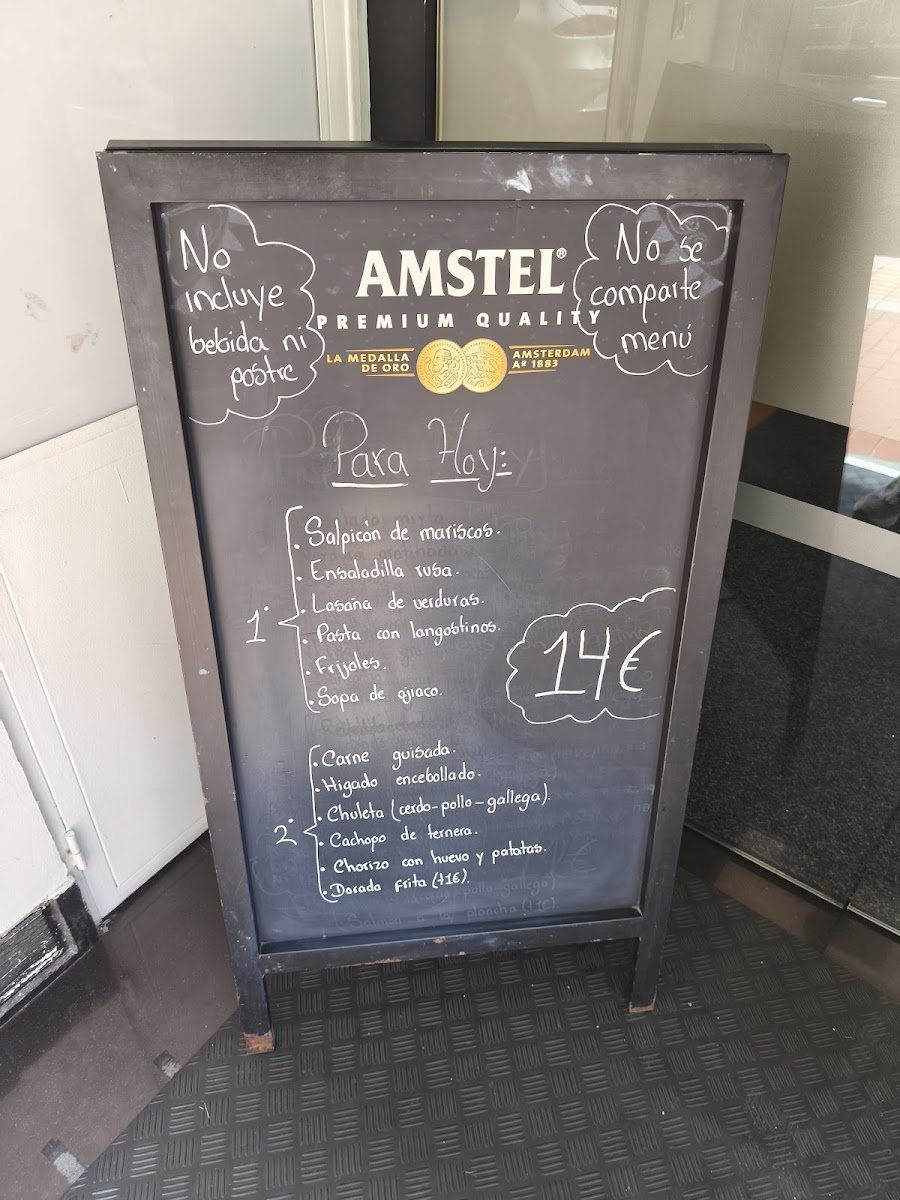 No
incluye
bebida ni
postre
AMSTEL®
PREMIUM QUALITY
LA MEDALLA
DE ORO
AMSTERDAM
Aº 1883
No se
comparte
menú
Para Hoy:
1°
• Salpicón de mariscos.
• Ensaladilla rusa.
• Lasaña de verduras.
• Pasta con langostinos.
• Frijoles.
• Sopa de ajiaco.
14€
2°
• Carne guisada.
• Higado encebollado.
• Chuleta (cerdo-pollo-gallega).
• Cachopo de ternera.
• Chorizo con huevo y patatas.
• Dorada frita (+1€).